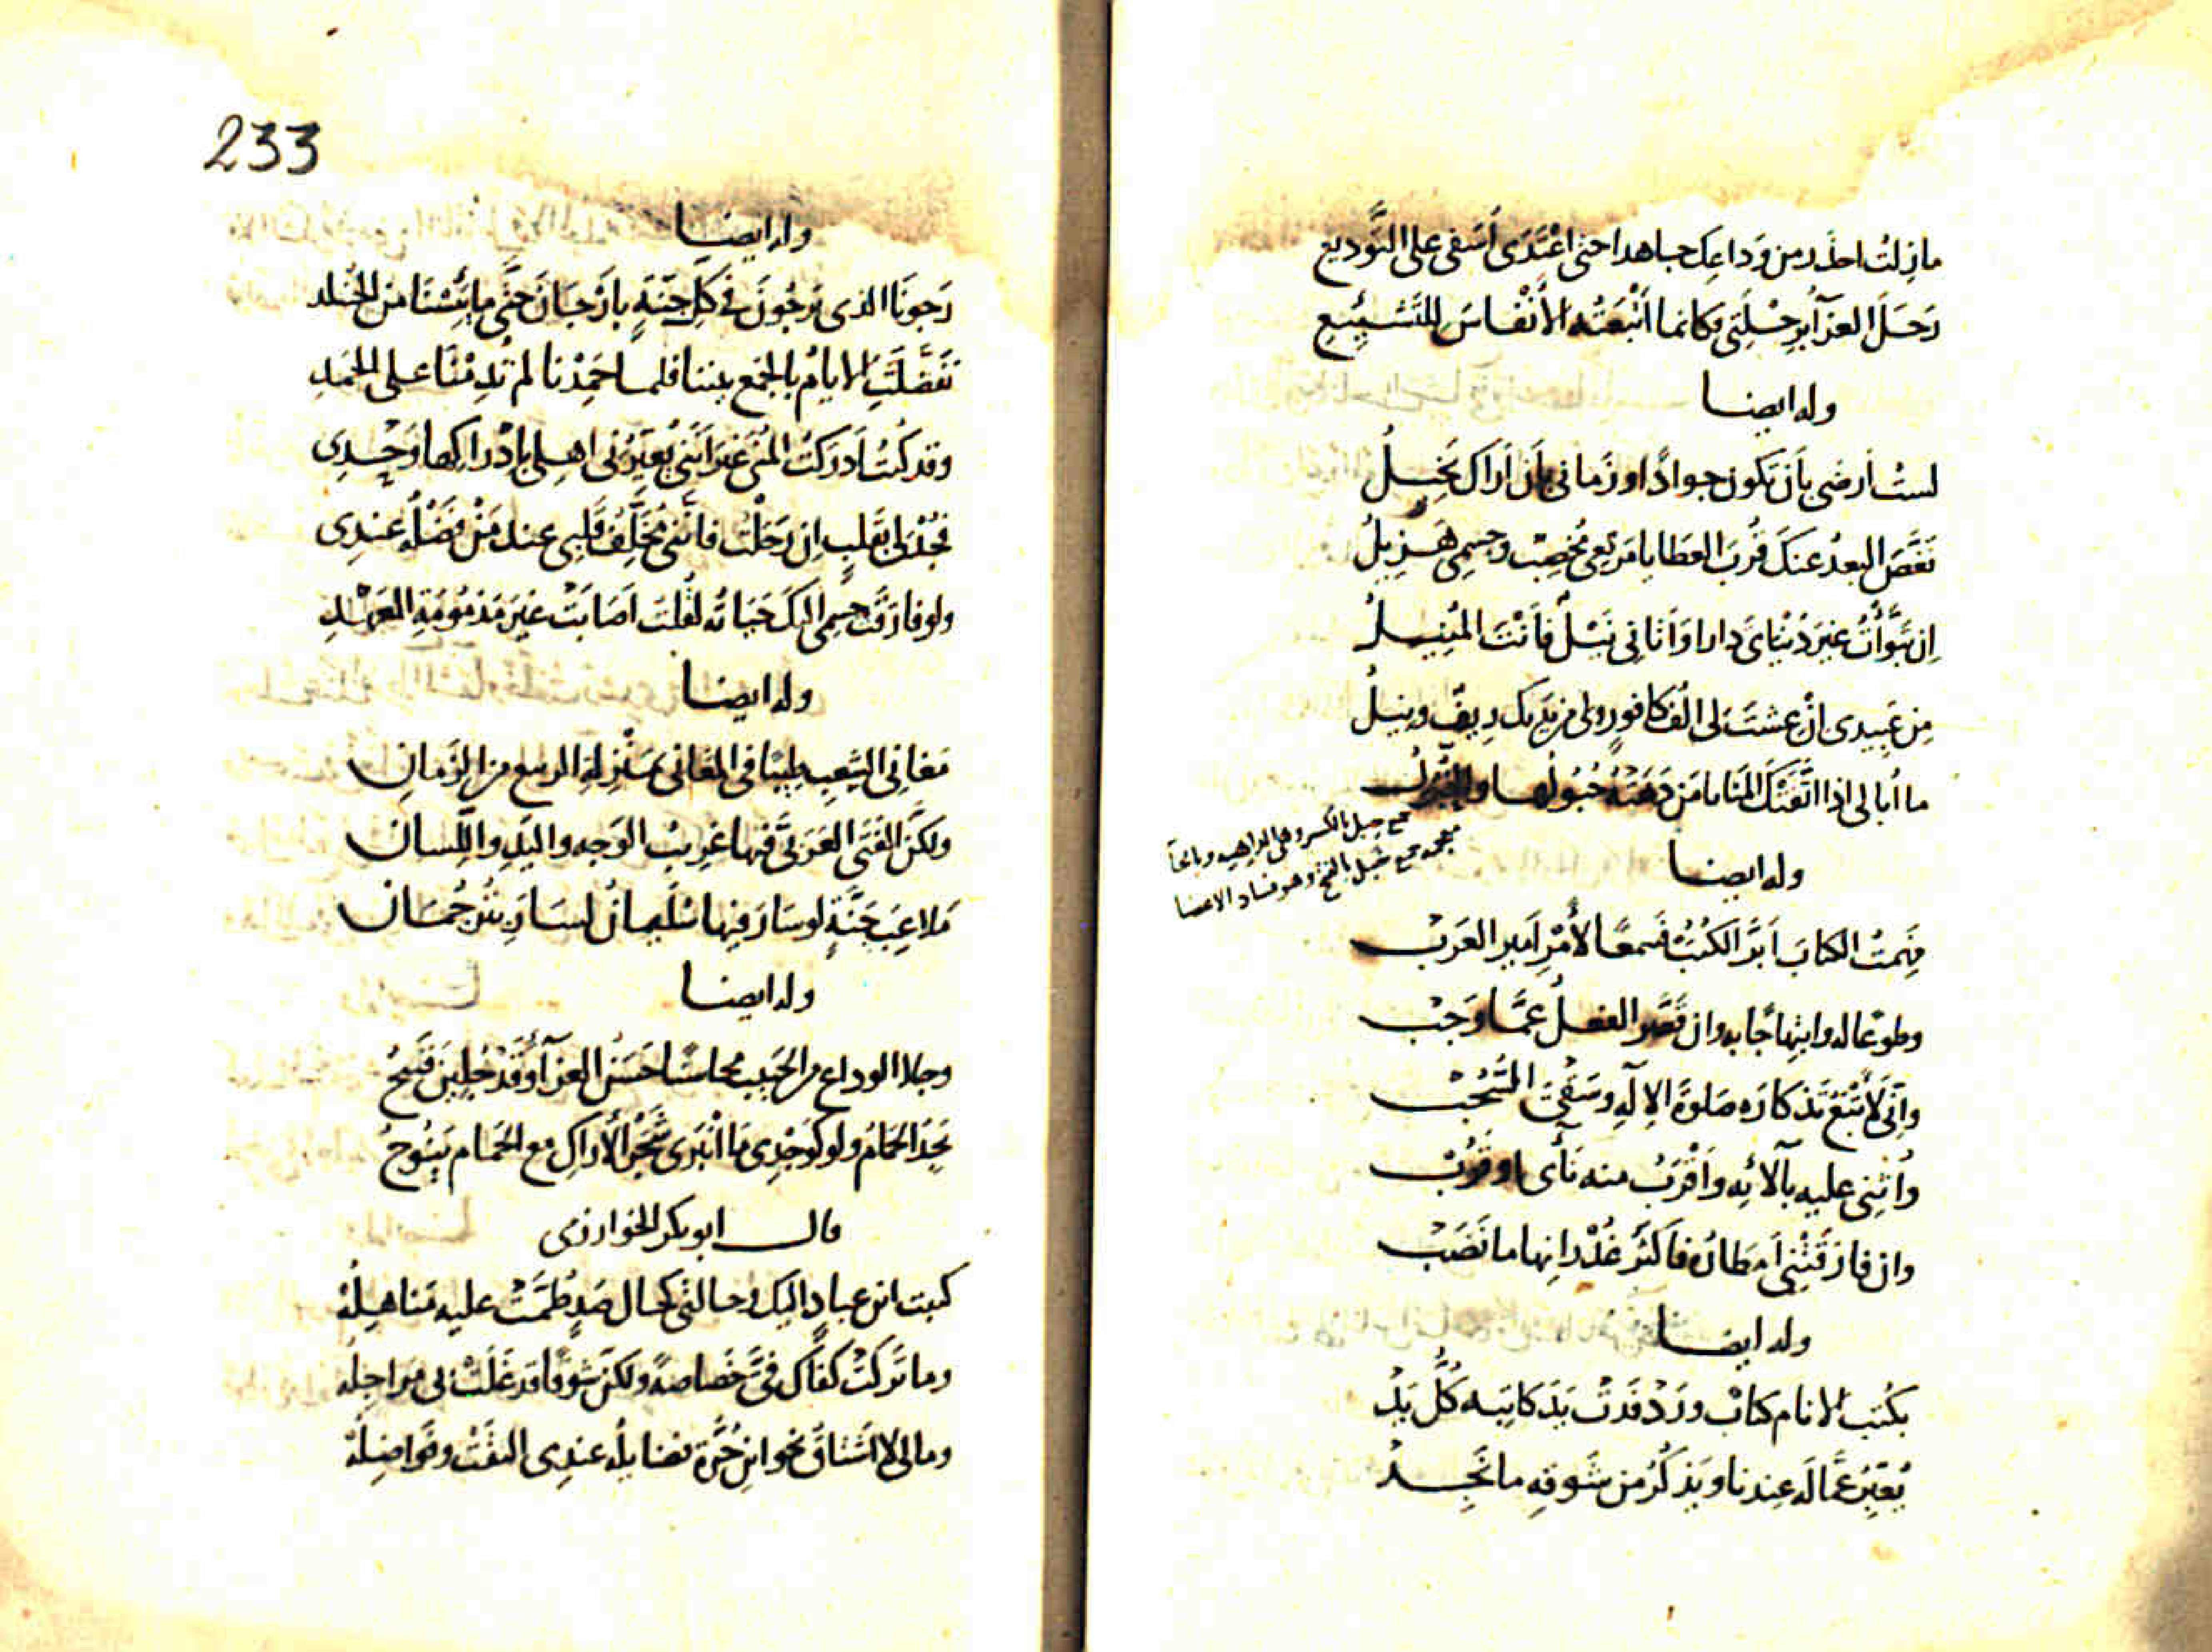 مازلتُ احذر من وَداعِك جاهدا حتى اغْتَدَى أسَفى على التَّوديع
رَحَلَ العزآبرِحْلَتى فكانما أتْبَعتُه الأنْفاسَ للتَّشْيِيعِ
وله ايضا
لستُ أرضى بأن تكون جوادًا وزمانى بأن أراك بَخِيلُ
نَغَّصَ البعدُ عنكَ قُربَ العطايا مَرتَعى مُخصِب وجسمى هَزيلُ
اِن تَبَوَّأْتُ غيرَ دُنْياىَ دارا وَأتانى نَيْلٌ فأَنْتَ المُنِيلُ
مِن عَبِيدى انْ عشتَ لى الْفُ كافورٍ ولى مِن يَدَيك رِيفٌ ونِيلُ
ما أبالى اذا اتَّقتْكَ المنايا مَن دَهَتْهُ حُبُولُها والخُبُولُ
جمع حبل بالكسر وهى الداهية وبالخآ
معجمه جمع خبل بالفتح وهو فساد الاعضا
وله ايضا
فهِمتُ الكتابَ ابَرَّ الكُتُبْ فسمعًا لأمْرِ أمير العَرَبْ
وطوعًا له وابتهاجًا به وان قَصَّر الفعلُ عمَّا وَجَبْ
وانّى لأُتْبِعُ تذكارَه صلوةَ الإلهِ وسَقْىَ السُّحُبْ
وأثنِى عليه بآلائِه وأقرُبُ منه نأى او قَرُبْ
وان فارَقَتْنِى أمطارُه فاكثَرُ غُدْرانِها ما نَضَبْ
وله ايضا
بكُتب الانام كتابٌ وَرَدْ فَدَتْ يَدَ كاتِبِه كُلُّ يَدْ
يُعَبِّرُ عمَّا لَه عندنا ويَذكُرُ من شَوقِه ما نَجِدْ
233
وله ايضا
رَجونَا الذى يَرجُونَ فى كلّ جنّةٍ بارَّجانَ حتّى ما يَئِسْنَا من الخُلد
تفَضَّلَتِ الايامُ بالجَمع بيننا فلما حَمِدْنا لم تُدِمْنَا على الحَمْدِ
وقد كنتُ أدرَكتُ المُنى غيرَ أنَّنى يُعَيِّرُنى اهلى بادْراكِها وَحْدِى
فجُدْ لى بقلبٍ ان رَحَلْت فانَّنى مُخَلِّفُ قلبى عند مَنْ فَضْلُهُ عندِى
ولو فارَقَت جسمى اليكَ حَيَاتُه لقُلتُ أصابَتْ غيرَ مَذمُومَةِ العَهْدِ
وله ايضا
مَغانِى الشِّعبِ طِيبًا فى المَغانى بمَنْزِلةِ الربيع من الزَّمانِ
ولكنّ الفَتى العَرَبىَّ فيها غريبُ الوَجهِ واليدِ واللِّسانِ
مَلاعِبُ جِنَّةٍ لو سَارَ فيها سُلَيمانُ لسارَ بتُرجُمانِ
وله ايضا
وجلا الوداع من الحَبِيب محاسنًا حَسَنُ العزآ وقد جُلِينَ قَبِيحُ
يَجِدُ الحمَامُ ولو كوَجْدِى ما انْبَرَى شَجَرُ الأراكِ مع الحَمام يَنوحُ
قال ابو بكر الخوارزمى
كتبت ابن عبادٍ اليك وحالتى كحال صَدٍ طَمَّتْ عليه مَناهِلُهْ
وما تَركَتْ كفَّاك فىَّ خَصاصةً ولكن شَوقًا قد غَلَتْ بى مَراجِلُه
ومالى لا أشتاق نحو ابن حُرَّة فضائلُه عندِى التقَتْ وفَواضِلُهْ